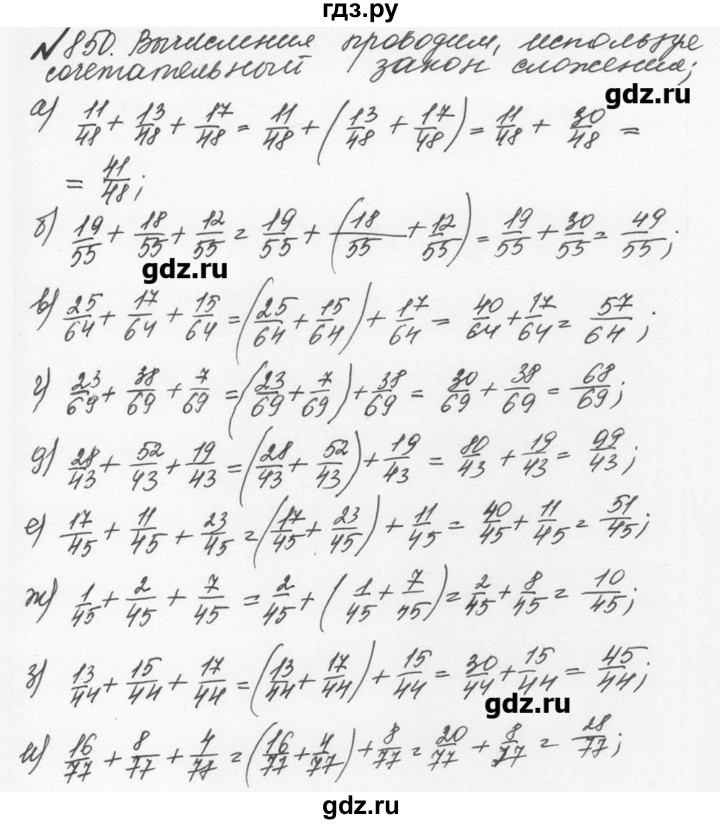 гдз.ру
№850. Вычисления проводим, используя
сочетательный закон сложения;
gdz.ru
а) 11/48 + 13/48 + 17/48 = 11/48 + (13/48 + 17/48) = 11/48 + 30/48 =
= 41/48;
б) 19/55 + 18/55 + 12/55 = 19/55 + (18/55 + 12/55) = 19/55 + 30/55 = 49/55;
gdz.ru
в) 25/64 + 17/64 + 15/64 = (25/64 + 15/64) + 17/64 = 40/64 + 17/64 = 57/64;
г) 23/69 + 38/69 + 7/69 = (23/69 + 7/69) + 38/69 = 30/69 + 38/69 = 68/69;
д) 28/43 + 52/43 + 19/43 = (28/43 + 52/43) + 19/43 = 80/43 + 19/43 = 99/43;
е) 17/45 + 11/45 + 23/45 = (17/45 + 23/45) + 11/45 = 40/45 + 11/45 = 51/45;
ж) 1/45 + 2/45 + 7/45 = 2/45 + (1/45 + 7/45) = 2/45 + 8/45 = 10/45;
з) 13/44 + 15/44 + 17/44 = (13/44 + 17/44) + 15/44 = 30/44 + 15/44 = 45/44;
gdz.ru
и) 16/77 + 8/77 + 4/77 = (16/77 + 4/77) + 8/77 = 20/77 + 8/77 = 28/77;
gdz.ru